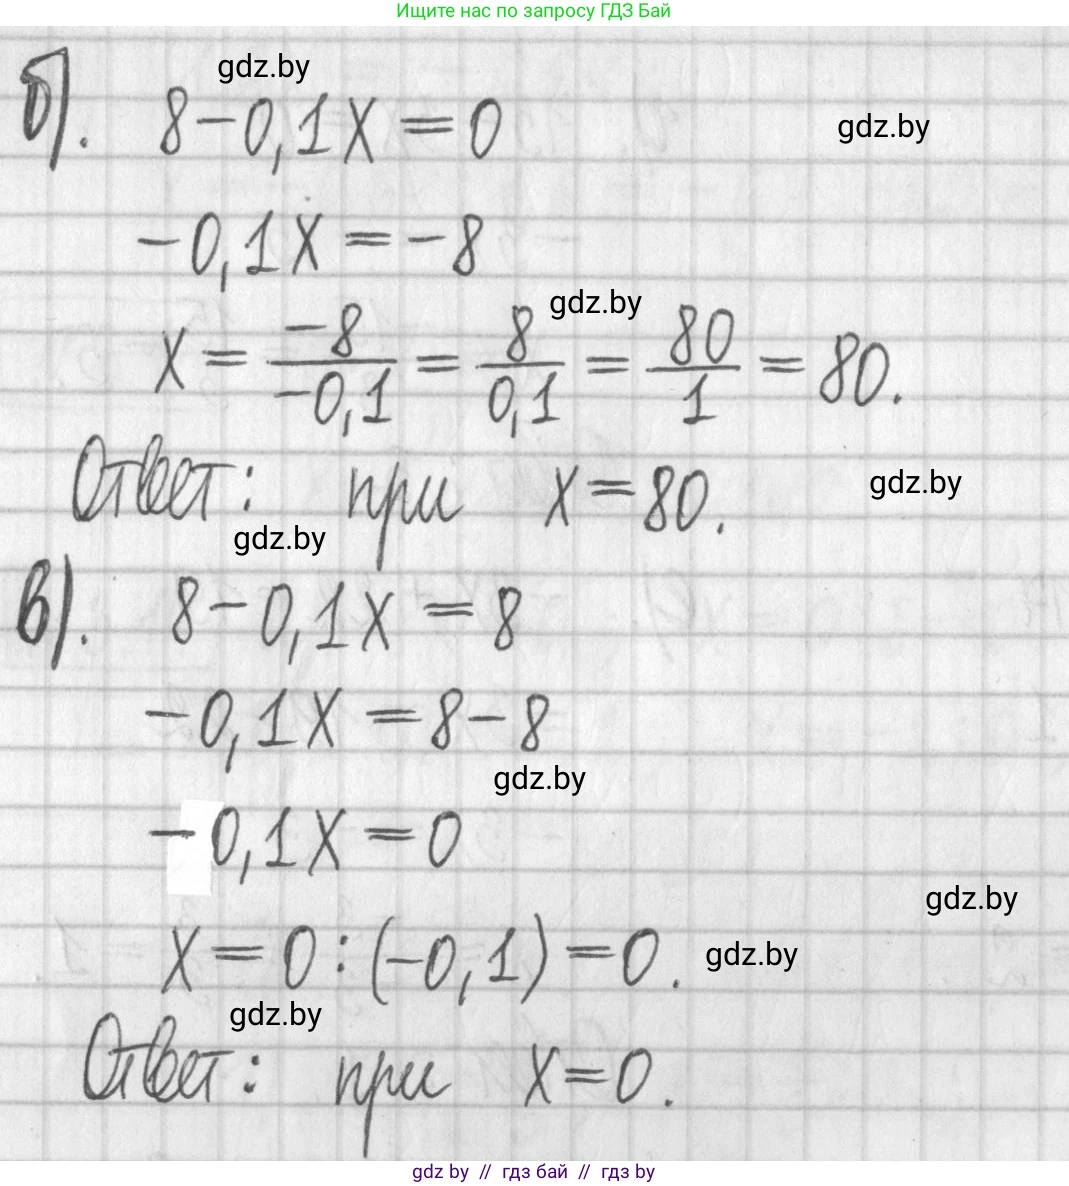 Ищите нас по запросу ГДЗ Бай
gdz.by
б). 8-0,1x=0
gdz.by
-0,1x=-8
gdz.by
x = -8/-0,1 = 8/0,1 = 80/1 = 80.
Ответ: при x=80.
gdz.by
gdz.by
в). 8-0,1x=8
-0,1x=8-8
gdz.by
-0,1x=0
gdz.by
x=0:(-0,1)=0.
gdz.by
gdz.by
Ответ: при x=0.
gdz by // гдз бай // гдз by